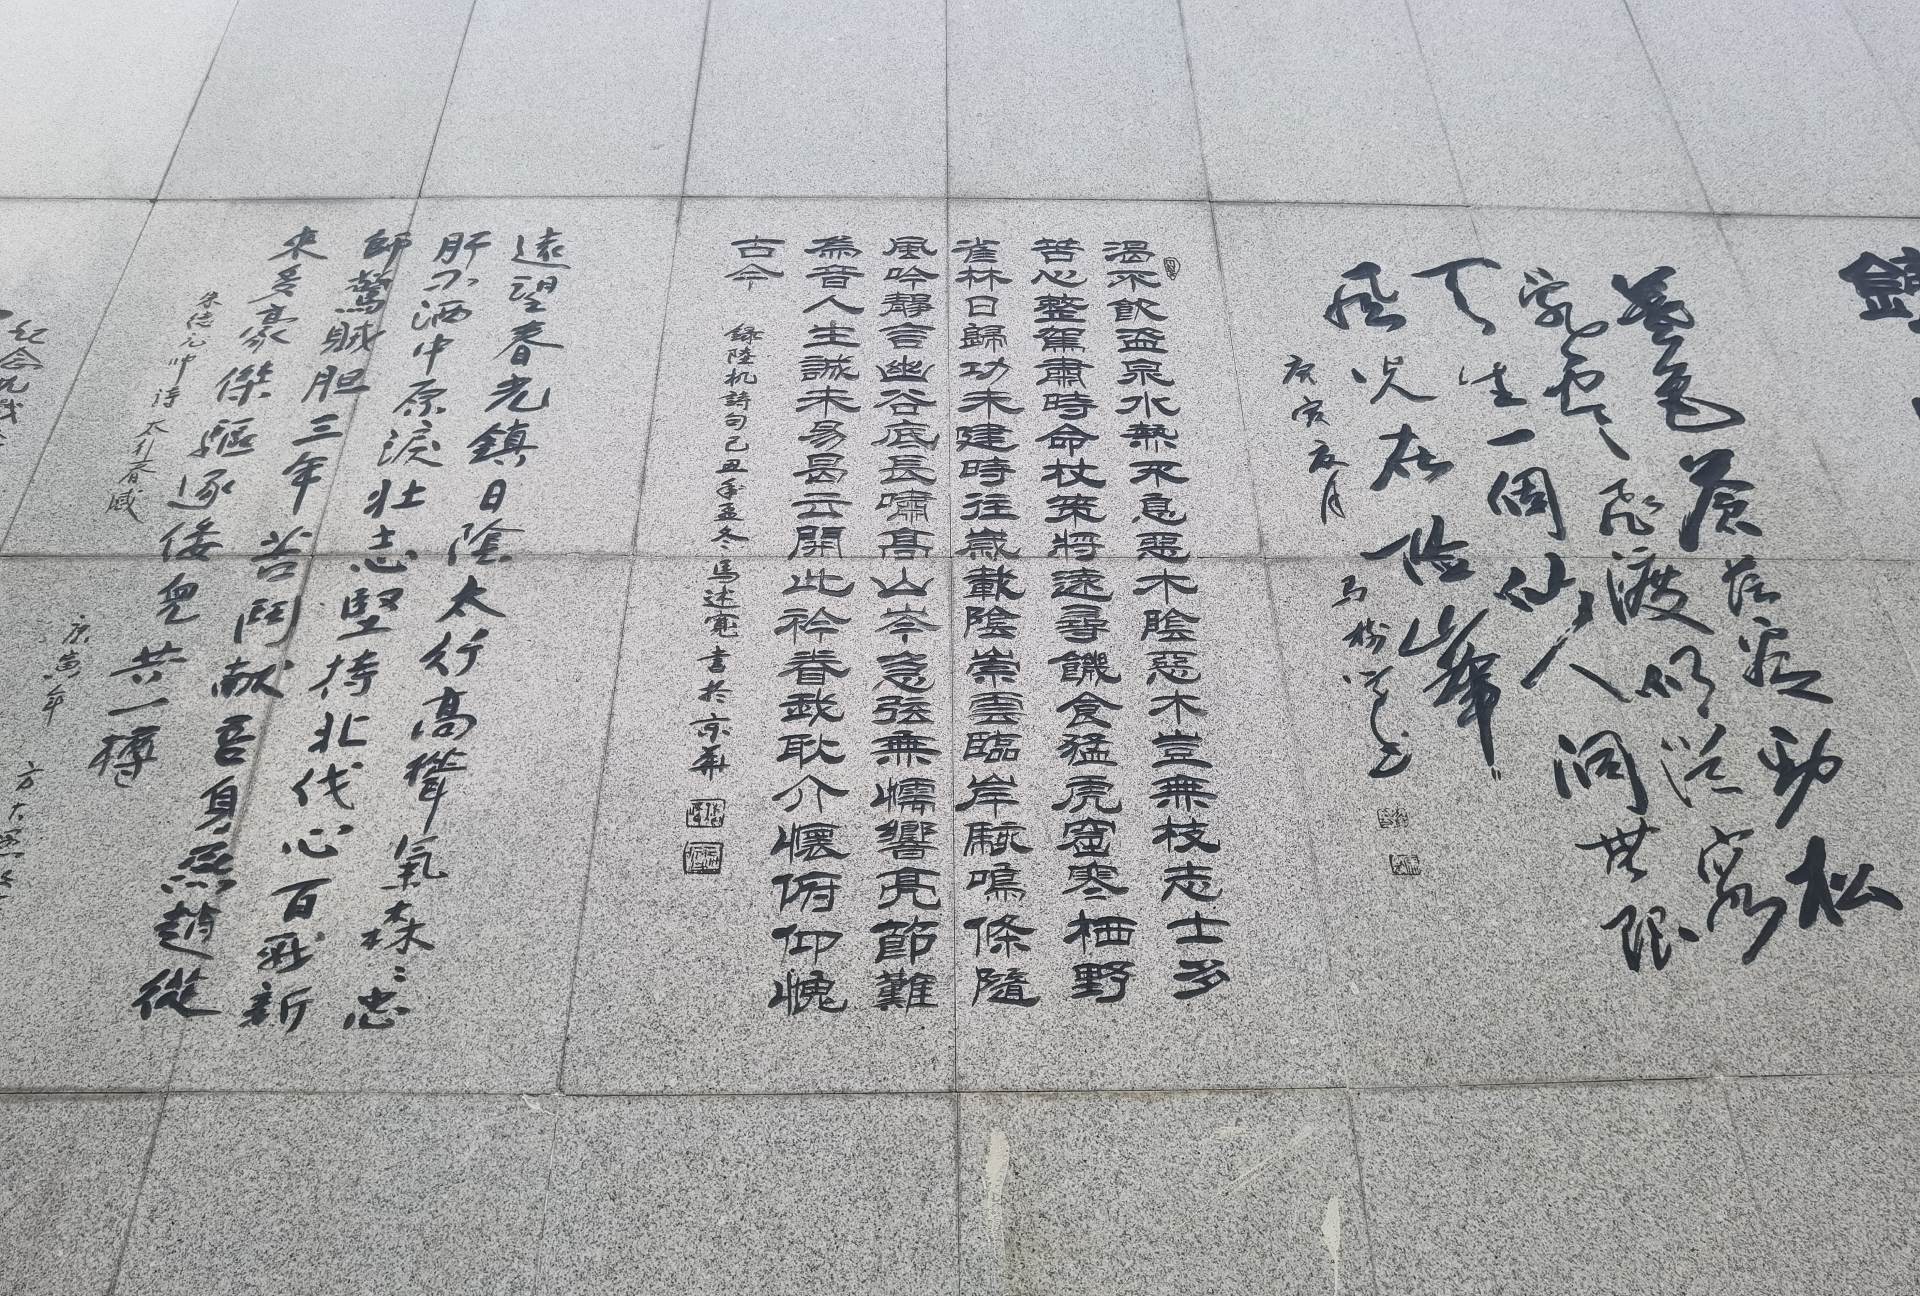 鎮
暮色蒼茫看勁松
亂雲飛渡仍從容
天生一個仙人洞無限
風光在险峰
庚寅夏月
馬樹 书
渴不飲盜泉水熱不息惡木陰惡木豈無枝志士多
苦心整駕肅時命杖策將遠尋饑食猛虎窟寒栖野
雀林日歸功未建時往歲載陰崇雲臨岸駭鳴條隨
風吟靜言幽谷底長嘯高山岑急弦無懦響亮節難
為音人生誠未易曷云開此衿眷我耿介懷俯仰愧
古今
録陸机詩句己丑年孟冬馬述寬書於京華
遠望春光鎮日陰太行高聳氣森〻忠
肝不洒中原淚壯志堅持北伐心百戰新
師驚賊胆三年苦鬥献吾身燕趙從
來多豪傑驅逐倭兒共一樽
朱德元帅詩太行春感
庚寅年
方大
紀念抗戰